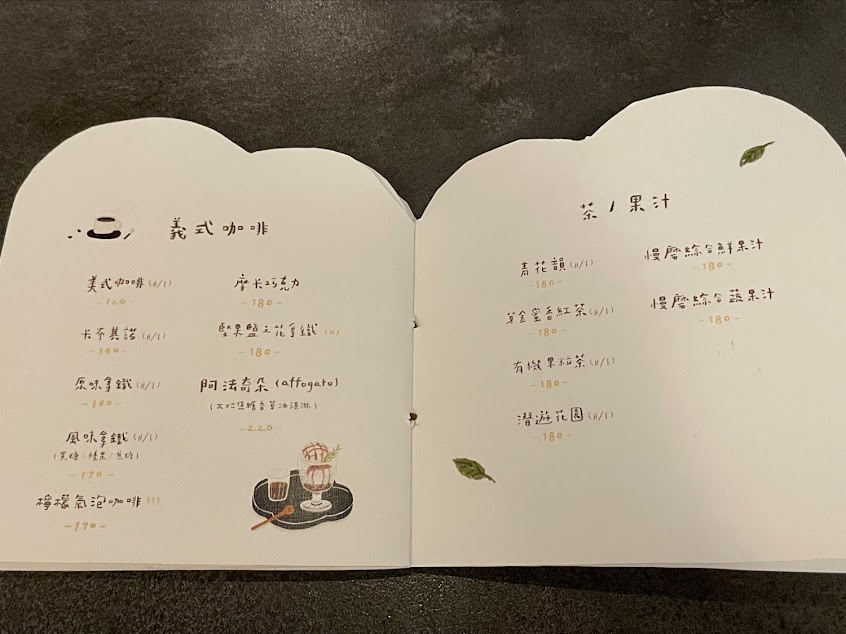 義式咖啡
美式咖啡 (H/I)
-120-
卡布其諾 (H/I)
-140-
原味拿鐵 (H/I)
-140-
風味拿鐵 (H/I)
-170-
檸檬氣泡咖啡 (I)
-170-
摩卡巧克力
-180-
堅果鹽之花拿鐵 (H)
-180-
阿法奇朵 (affogato)
-220-
茶/果汁
青花韻 (H/I)
-180-
蜜香紅茶 (H/I)
-180-
有機果粒茶 (H/I)
-180-
潛遊花園 (H/I)
-180-
慢磨綜合鮮果汁
-180-
慢磨綜合蔬果汁
-180-